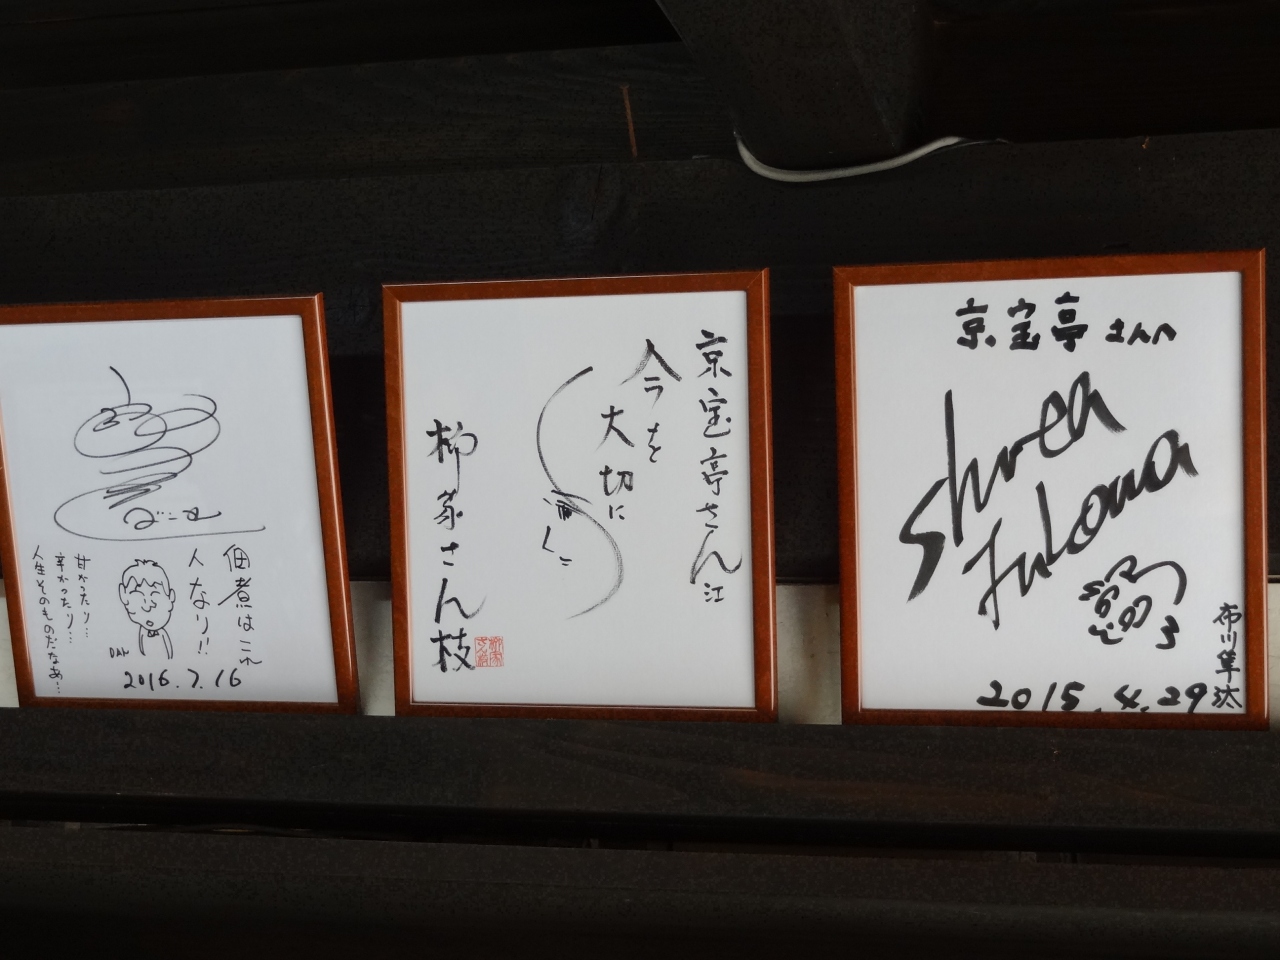 佃煮はこれ
人なり!!
甘かったり...
辛かったり...
人生そのものだなあ...
DAN
2016.7.16
京宝亭さん江
今を
大切に
柳家さん枝
京宝亭さんへ
Shuta
Fukawa
布川隼汰
2015.4.29